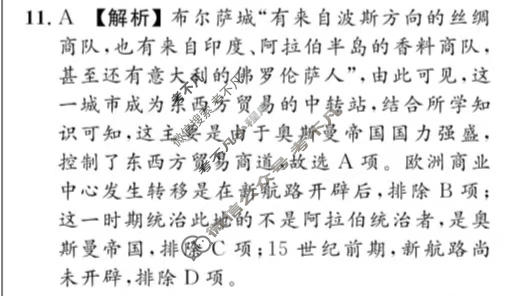 11. A 【解析】布尔萨城“有来自波斯方向的丝绸
商队,也有来自印度、阿拉伯半岛的香料商队,
甚至还有意大利的佛罗伦萨人”,由此可见,这
一城市成为东西方贸易的中转站,结合所学知
识可知,这主要是由于奥斯曼帝国国力强盛,
控制了东西方贸易商道,故选 A 项。欧洲商业
中心发生转移是在新航路开辟后,排除 B 项;
这一时期统治此地的不是阿拉伯统治者,是奥
斯曼帝国,排除 C 项;15 世纪前期,新航路尚
未开辟,排除 D 项。